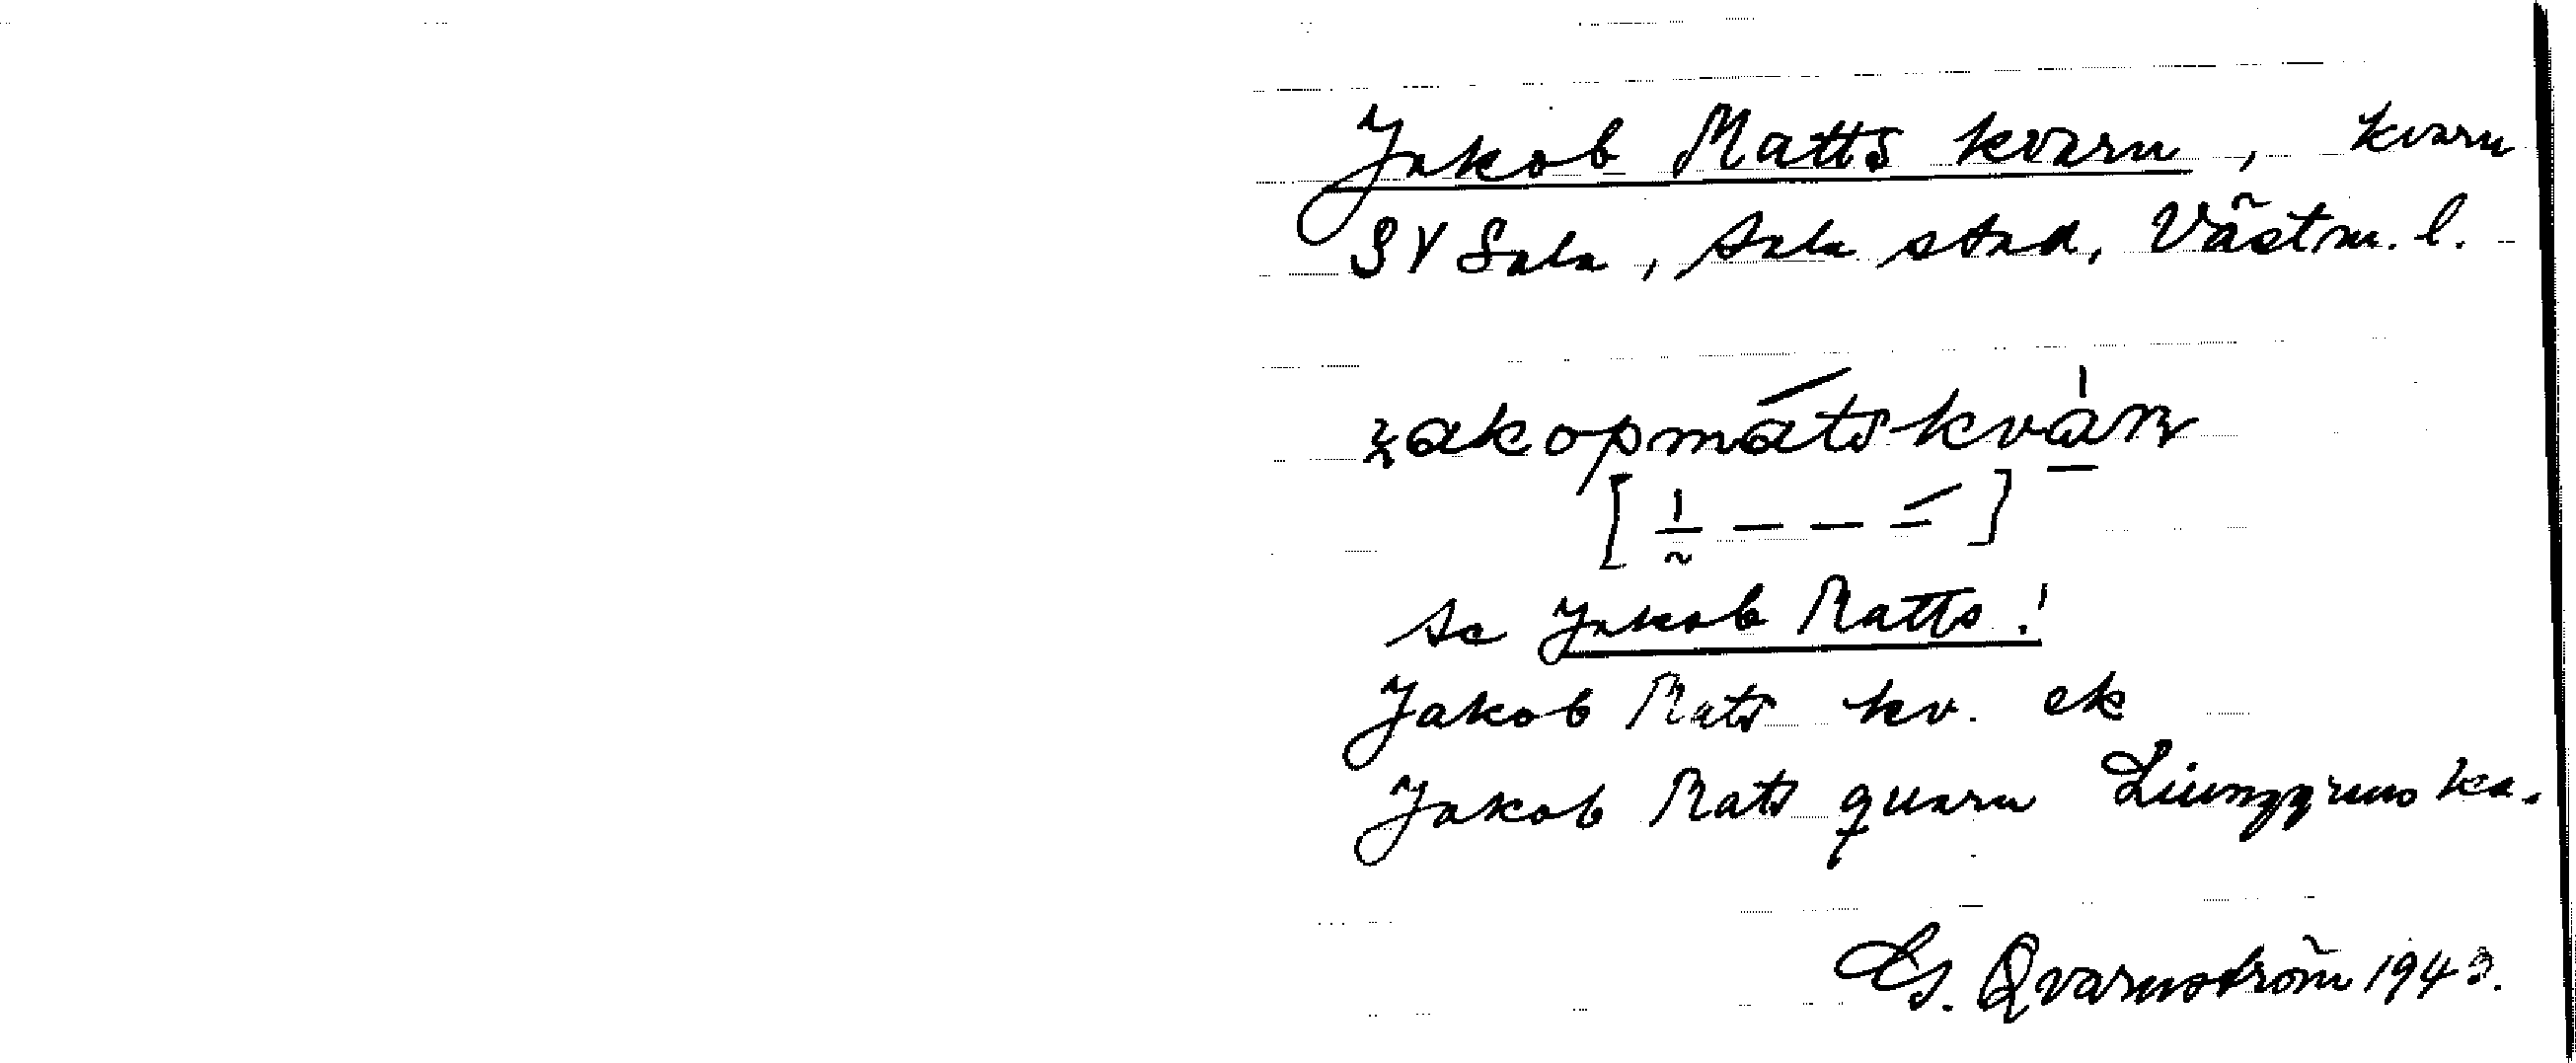 Jakob Matts kvarn, kvarn
SV Sala, Sala stad, Västm. l.
se Jakob Matts!
Jakob Mats kv. ek
Jakob Mats quarn Liunggrens ka.
G. Qvarnström 1943.